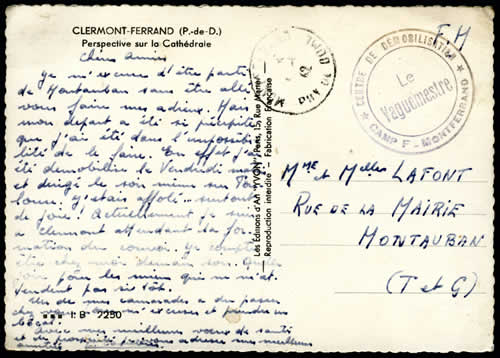 CLERMONT-FERRAND (P.-de-D.)
Perspective sur la Cathédrale
Chers Amies
Je m'excuse d'être parti
de Montauban sans être allé
vous faire mes adieux. Mais
mon départ a été si précipité
que j'ai été dans l'impossibi
lité de le faire. En effet j'ai
été démobilisé le Vendredi
et dirigé le soir même sur
J'étais affolé surtout
de joie! Actuellement je suis
à Clermont attendant la for
mation du convoi. Je compte
être chez moi demain soir. Quelle
joie pour les miens qui ne m'at
tendent pas si tôt.
Un de mes camarades a du passer
chez vous m'excuser et prendre
Avec mes meilleurs vœux de santé
et de prospérité je vous adresse mes meilleures
amitiés
I. B 2250
Les Éditions d'Art "YVON", Paris, 15, Rue Martel
Reproduction interdite - Fabrication Française
F.M
CENTRE DE DÉMOBILISATION
Le
Vaguemestre
CAMP F - MONTFERRAND
MME et Melles LAFONT
RUE DE LA MAIRIE
MONTAUBAN
(T et G)